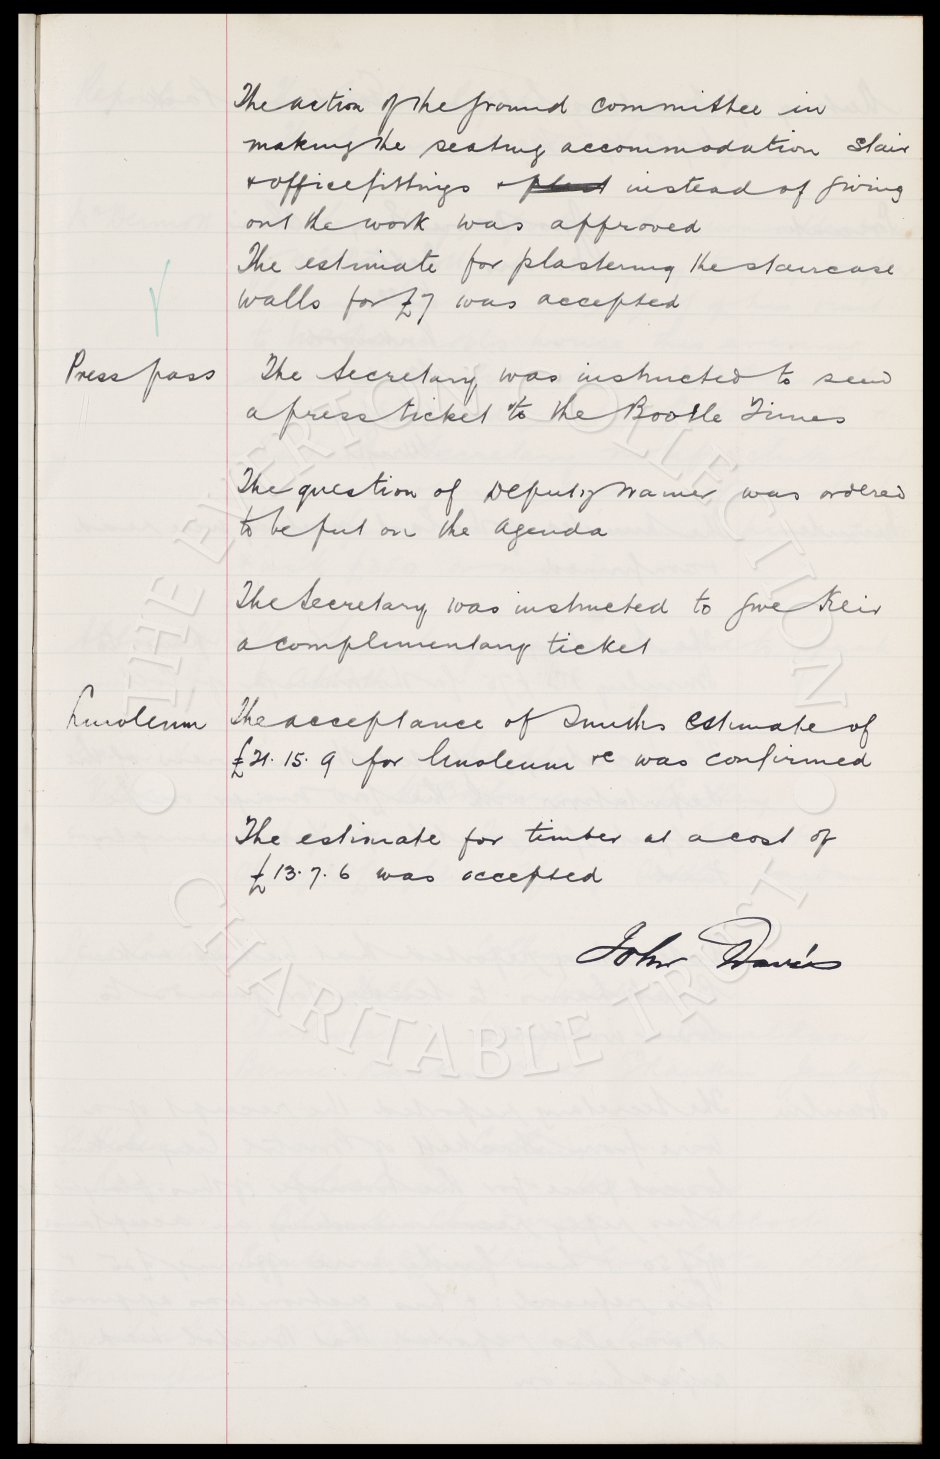 The action of the Ground committee in
making the seating accommodation stair
& office fittings & instead of giving
out the work was approved
The estimate for plastering the staircase
walls for £7 was accepted
Press pass
The Secretary was instructed to send
a press ticket to the Bootle Times
The question of Deputy Trainer was ordered
to be put on the Agenda
The Secretary was instructed to give Keir
a complimentary ticket
Linoleum
The acceptance of Smiths estimate of
£21.15.9 for linoleum &c was confirmed
The estimate for timber at a cost of
£13.7.6 was accepted
John Davies
THE EVERTON COLLECTION
CHARITABLE TRUST